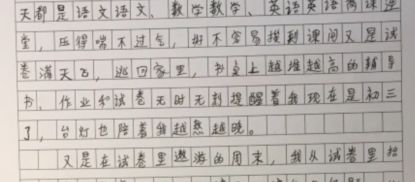 天都是语文语文、数学数学、英语英语两课连
堂，压得喘不过气，好不容易挨到课间又是试
卷满天飞，逃回家里，书桌上越堆越高的辅导
书、作业和试卷无时无刻提醒着我现在是初三
了，台灯也陪着我越熬越晚。
又是在试卷里遨游的周末，我从试卷里抬